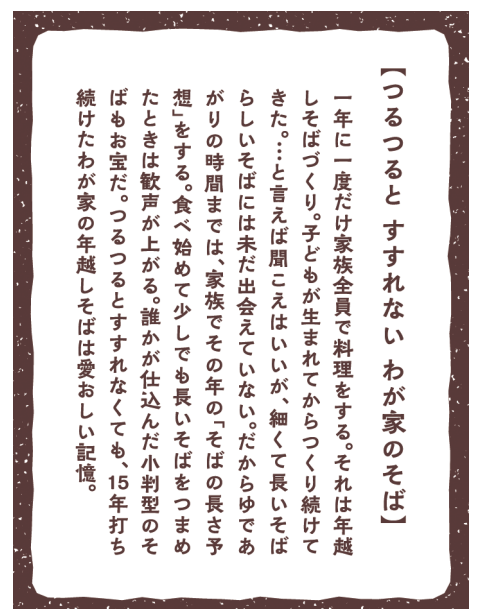 【つるつると すすれない わが家のそば】
一年に一度だけ家族全員で料理をする。それは年越
しそばづくり。子どもが生まれてからつくり続けて
きた。…と言えば聞こえはいいが、細くて長いそば
らしいそばには未だ出会えていない。だからゆであ
がりの時間までは、家族でその年の「そばの長さ予
想」をする。食べ始めて少しでも長いそばをつまめ
たときは歓声が上がる。誰かが仕込んだ小判型のそ
ばもお宝だ。つるつるとすすれなくても、15年打ち
続けたわが家の年越しそばは愛おしい記憶。